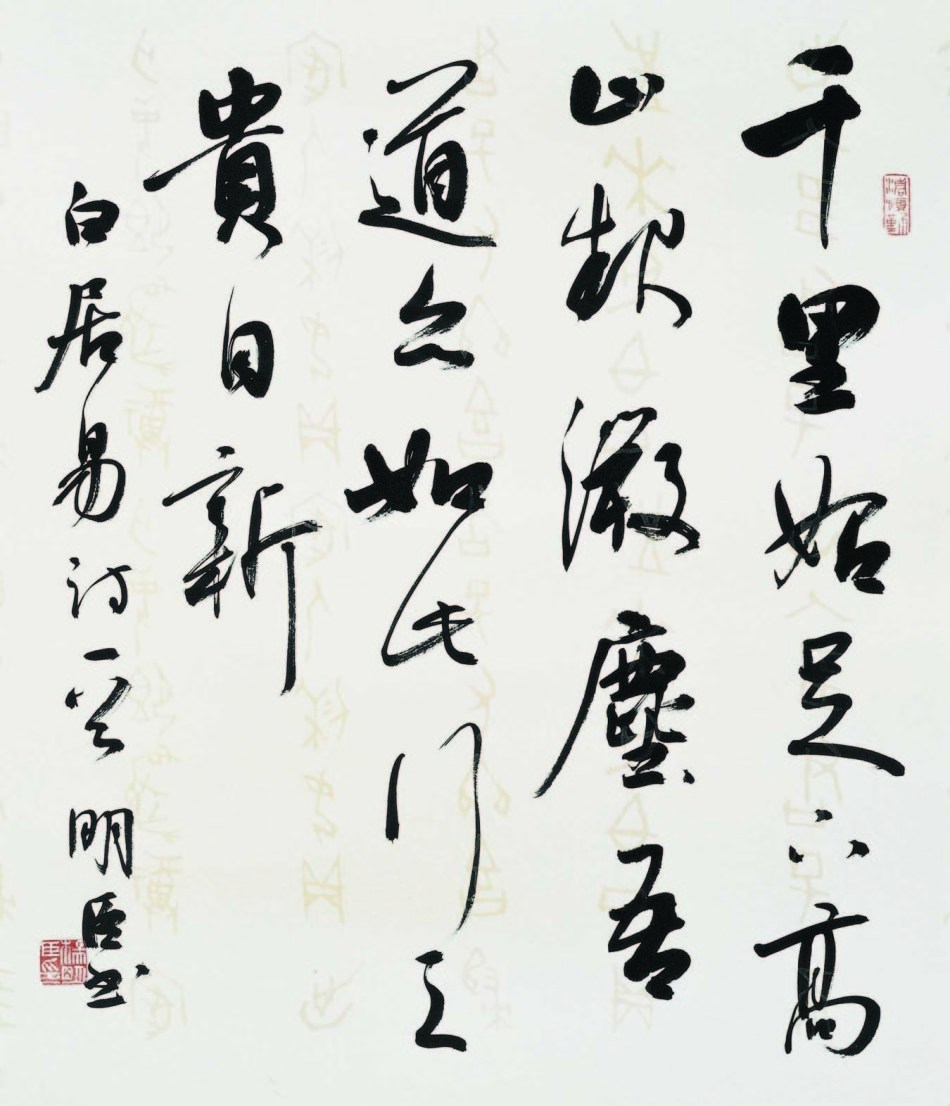 千里始足下高
山起微塵吾
道亦如此行之
貴日新
白居易詩一首 明臣書